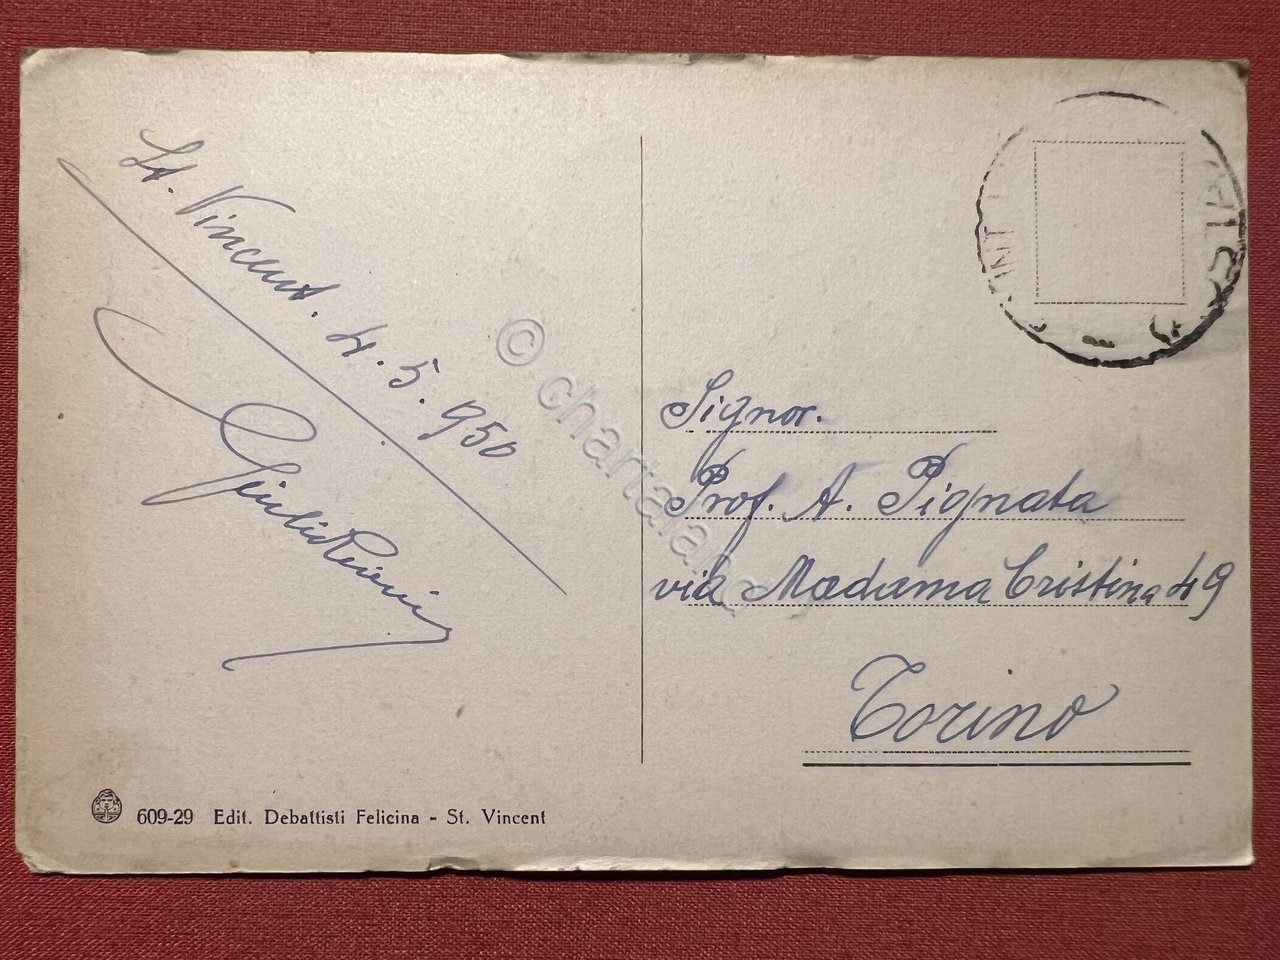 St. Vincent. 4. 5. 950
Signor.
Prof. A. Pignata
via Madama Cristina 49
Torino
609-29 Edit. Debattisti Felicina - St. Vincent
© chartaland